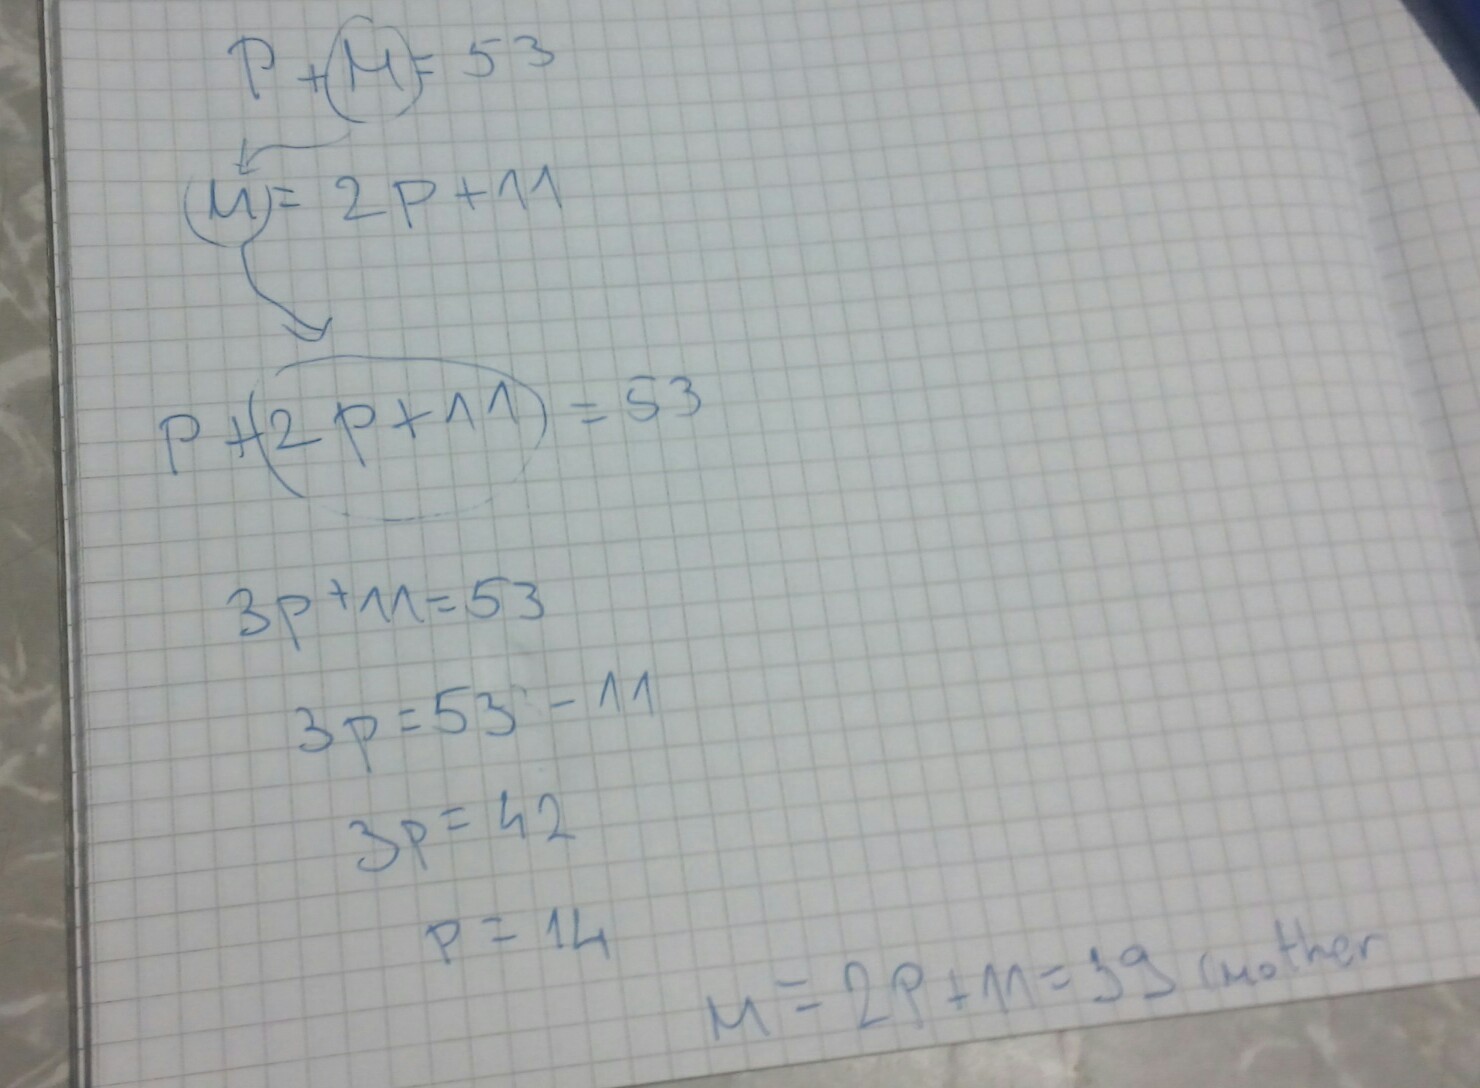 P + M = 53
M = 2P + 11
P + (2P + 11) = 53
3P + 11 = 53
3P = 53 - 11
3P = 42
P = 14
M = 2P + 11 = 39 (mother